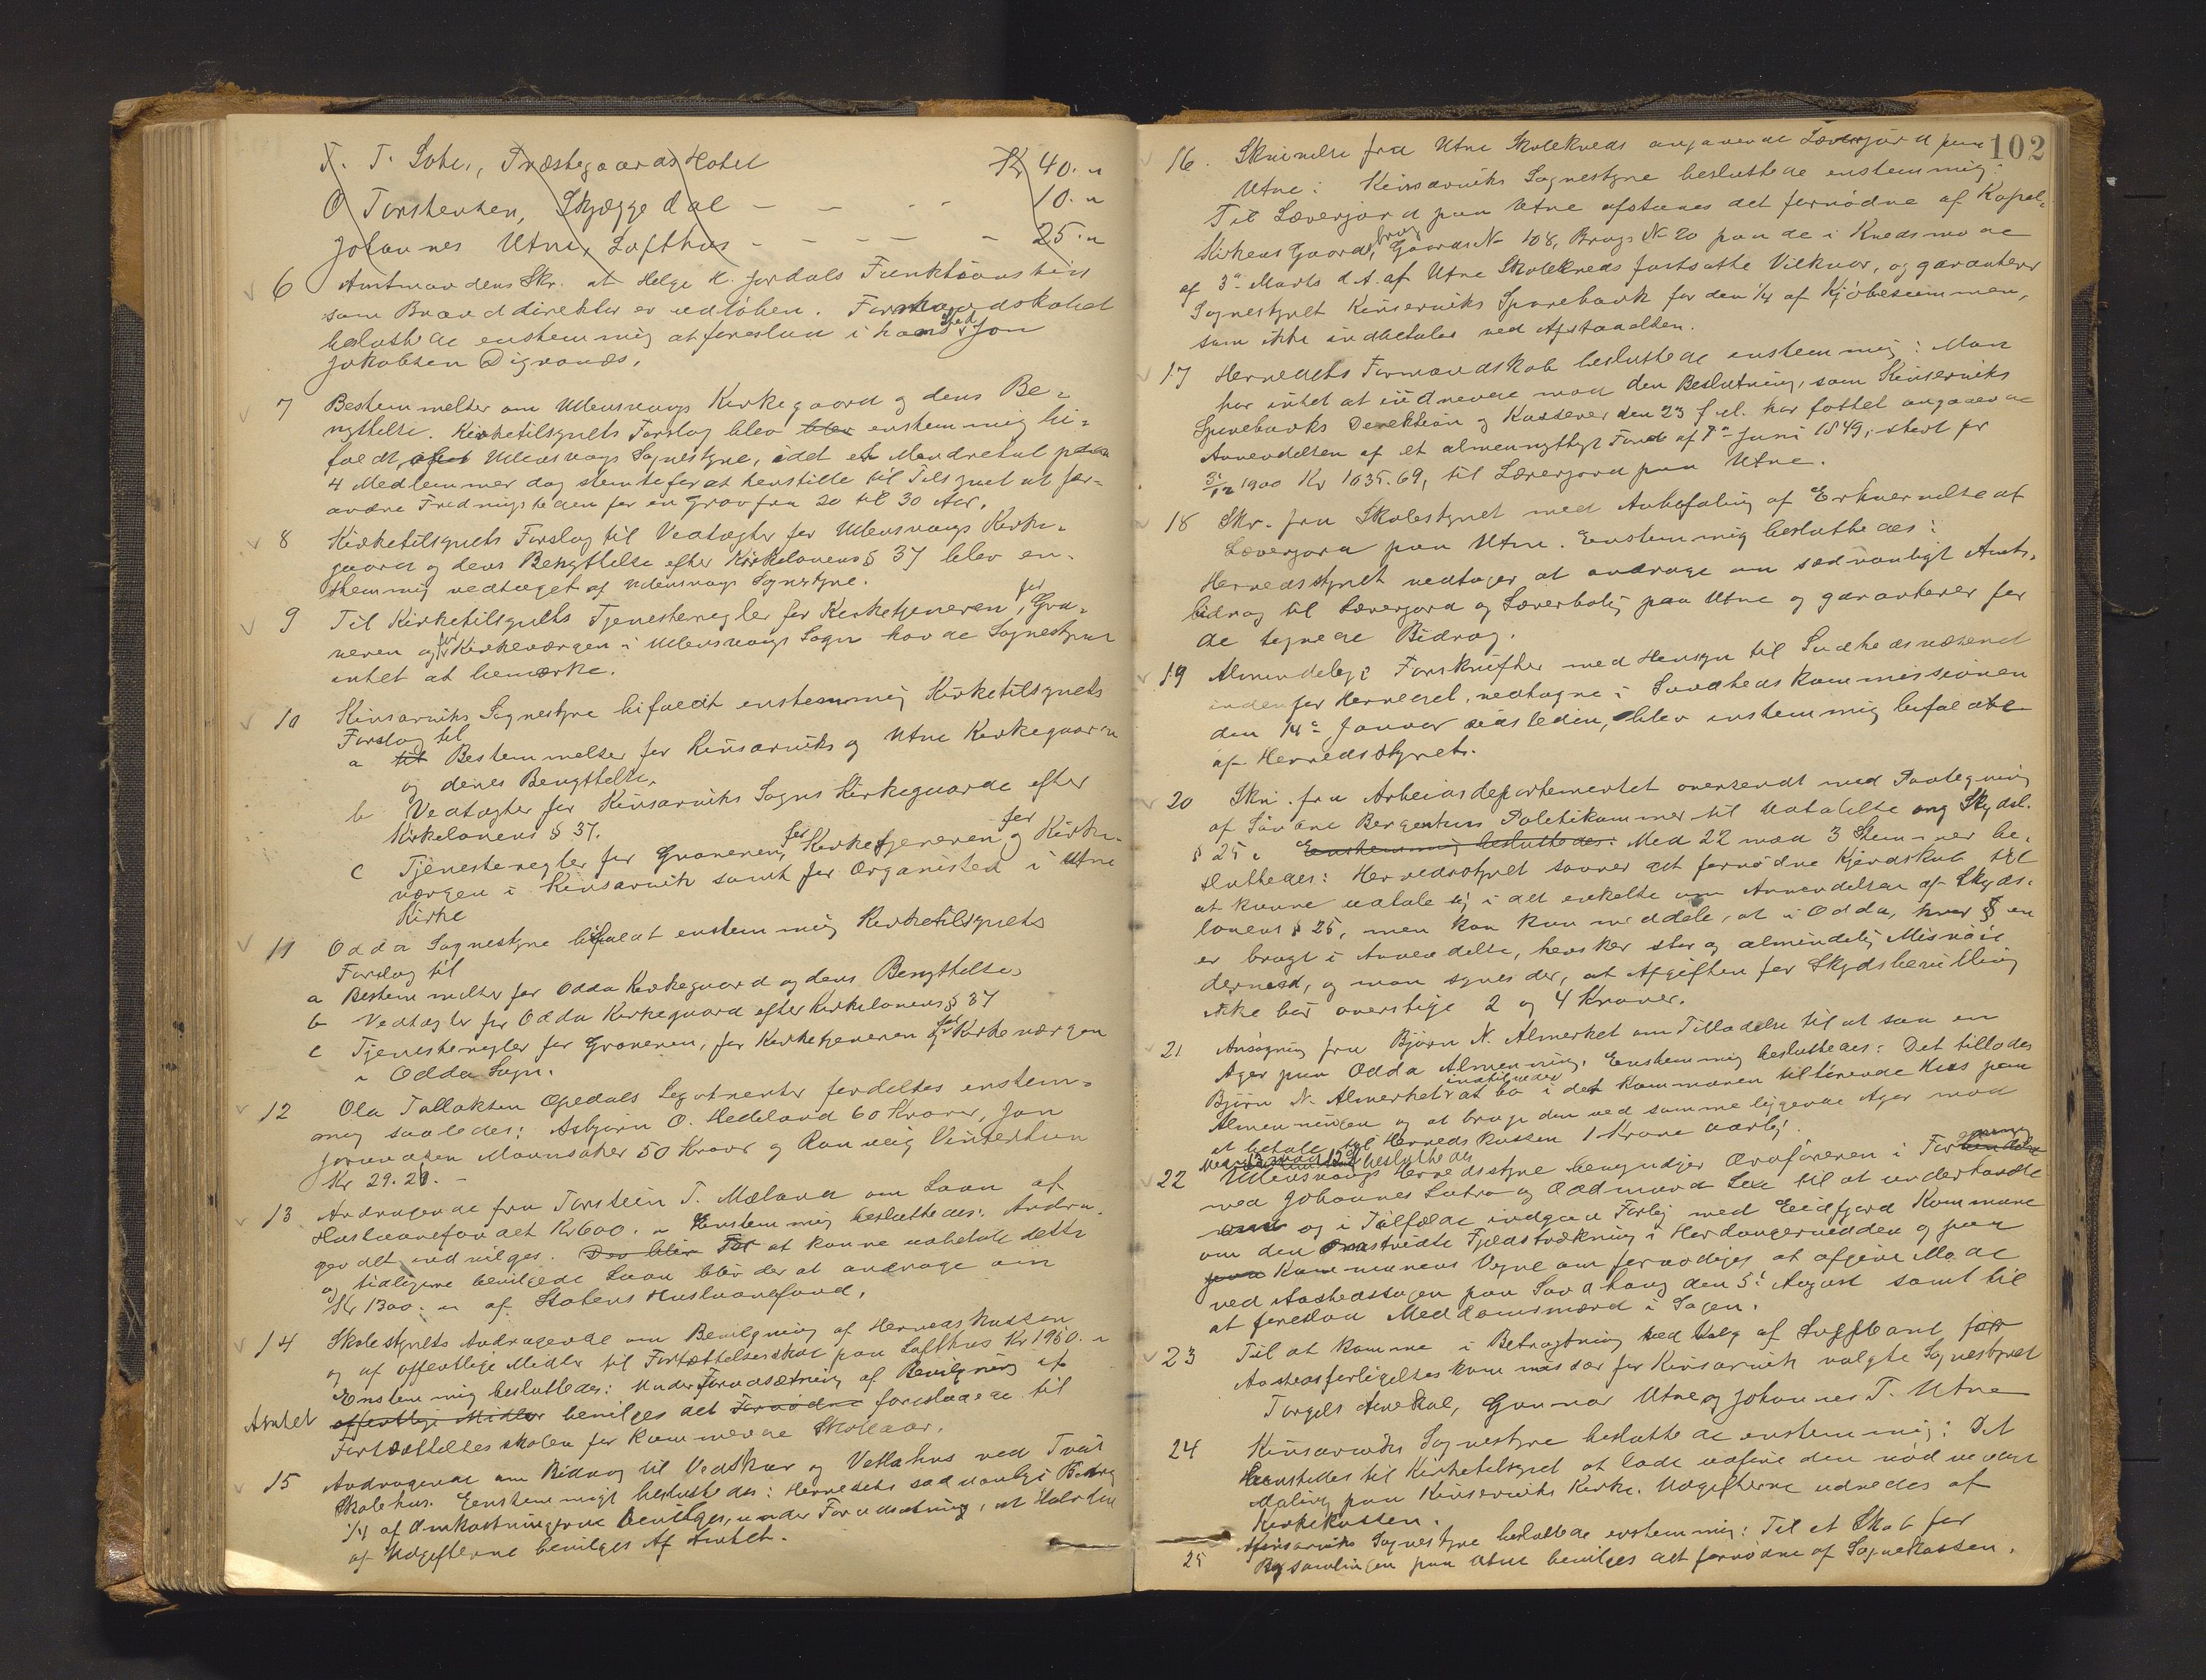 T. T. Lote, Præstegaards Hotel Kr 40. "
O Torstensen, Skjæggedal - - - - 10. "
Johannes Utne, Lofthus - - - - - 25. "
6 Amtmandens Skr. at Helge K. Jordals Funktionstid
som Branddirektør er udløben. Formandskabet
besluttede enstemmig at foreslaa i hans Sted Jon
Jakobsen Digranæs.
7 Bestemmelser om Ullensvangs Kirkegaard og dens Be-
nyttelse. Kirketilsynets Forslag blev blev enstemmig bi-
faldt af Ullensvangs Sognestyre, idet et Mindretal paa
4 Medlemmer dog stemte for at henstille til Tilsynet at for-
andre Fredningstiden for en Grav fra 20 til 30 Aar.
8 Kirketilsynets Forslag til Vedtægter for Ullensvangs Kirke-
gaard og dens Benyttelse efter Kirkelovens § 37 blev en-
stemmig vedtaget af Ullensvangs Sognestyre.
9 Til Kirketilsynets Tjenesteregler for Kirketjeneren, for Gra-
veren og for Kirkeværgen i Ullensvangs Sogn havde Sognestyret
intet at bemærke.
10 Kinsarviks Sognestyre bifaldt enstemmig Kirketilsynets
Forslag til
a til Bestemmelser for Kinsarviks og Utne Kirkegaarde
og deres Benyttelse.
b Vedtægter for Kinsarviks Sogns Kirkegaarde efter
Kirkelovens § 37.
c Tjenesteregler for Graveren, for Kirketjeneren og for Kirke-
værgen i Kinsarvik samt for Organisten i Utne
Kirke
11 Odda Sognestyre bifaldt enstemmig Kirketilsynets
Forslag til
a Bestemmelser for Odda Kirkegaard og dens Benyttelse
b Vedtægter for Odda Kirkegaard efter Kirkelovens § 37
c Tjenesteregler for Graveren, for Kirketjeneren og for Kirkeværgen
i Odda Sogn.
12 Ola Tollaksen Opedals Legatrenter fordeltes enstem-
mig saaledes: Asbjørn O. Hedeland 60 Kroner, Jon
Jørundsen Maunsaker 50 Kroner og Ranveig Vinterhun
Kr 29.21. -
13 Andragende fra Torstein T. Mæland om Laan af
Huslaanefondet Kr 600. " Enstemmig besluttedes: Andra-
gendet indvilges. Der blir For at kunne udbetale dette
og tidligere bevilgede Laan blir der at andrage om
Kr 1300. " af Statens Huslaanefond.
14 Skolestyrets Andragende om Bevilgning af Herredskassen
og af offentlige Midler til Fortsættelsesskole paa Lofthus Kr 1950. "
Enstemmig besluttedes: Under Forudsætning af Bevilgning af
Amtet offentlige Midler bevilges det Fornødne foreslaaede til
Fortsættelsesskolen for kommende Skoleaar.
15 Andragende om Bidrag til Vedskur og Vetlahus ved Tveit
Skolehus. Enstemmigt besluttedes: Herredets sædvanlige Bidrag
1/4 af Omkostningerne bevilges, under Forudsætning, at Halvdelen
af Udgifterne bevilges af Amtet.
102
16. Skrivelse fra Utne Skolekreds angaaende Lærerjord paa
Utne: Kinsarviks Sognestyre besluttede enstemmig:
Til Lærerjord paa Utne afstaaes det fornødne af Kapel-
Kirkens Gaard, Gaards No 108, Brugs No 20 paa de i Kredsmøde
af 3' Marts d.A. af Utne Skolekreds fastsatte Vilkaar, og garanterer
Sognestyret Kinserviks Sparebank for den 1/4 af Kjøbesummen,
som ikke indbetales ved Afstaaelsen.
17 Herredets Formandskab besluttede enstemmig: Man
har intet at indvende mod den Beslutning, som Kinserviks
Sparebanks Direktion og Kasserer den 23 f.M. har fattet angaaende
Anvendelsen af et almennyttigt Fond af 7' Juni 1849, stort pr
31/12 1900 Kr 1035.69, til Lærerjord paa Utne.
18 Skr. fra Skolestyret med Anbefaling af Erhvervelse af
Lærerjord paa Utne. Enstemmig besluttedes:
Herredsstyret vedtager at andrage om sædvanligt Amts-
bidrag til Lærerjord og Lærerbolig paa Utne og garanterer for
de tegnede Bidrag.
19 Almindelige Forskrifter med Hensyn til Sundhedsvæsenet
inden for Herredet, vedtagne i Sundhedskommissionen
den 14' Januar sidstleden, blev enstemmig bifaldte
af Herredsstyret.
20 Skr. fra Arbeidsdepartementet oversendt med Paategning
af Søndre Bergenhus Politikammer til Udtalelse ang Skydsl.
§ 25. Enstemmig besluttedes: Med 22 mod 3 Stemmer be-
sluttedes: Herredsstyret savner det fornødne Kjendskab til
at kunne udtale sig i det enkelte om Anvendelsen af Skyds-
lovens § 25, men kan kun meddele, at i Odda, hvor § en
er bragt i Anvendelse, hersker stor og almindelig Misnøie
dermed, og man synes der, at Afgiften for Skydsbevilling
ikke bør overstige 2 og 4 Kroner.
21 Ansøgning fra Bjørn N. Almerket om Tilladelse til at saa en
Ager paa Odda Almenning. Enstemmig besluttedes: Det tillades
Bjørn N. Almerket indtil videre at bo i det Kommunen tilhørende Hus paa
Almenningen og at bruge den ved samme liggende Ager mod
at betale til Herredskassen 1 Krone aarlig.
Med 13 mod 12 St besluttedes
22 Ullensvangs Herredsstyre bemyndiger Ordføreren i Forening
med Johannes Lutro og Oddmund Sexe til at underhandle
om og i Tilfælde indgaa Forlig med Eidfjord Kommune
om den omstridte Fjeldstrækning i Hardangervidden og paa
paa Kommunens Vegne om fornødiges at afgive Møde
ved Aastedssagen paa Sandhaug den 5' August samt til
at foreslaa Meddomsmænd i Sagen.
23 Til at komme i Betragtning ved Valg af Suppleant for
Aastedsforligelseskommissær for Kinsarvik valgte Sognestyret
Torgils Anekal, Gunnar Utne og Johannes T. Utne
24 Kinsarviks Sognestyre besluttede enstemmig: Det
henstilles til Kirketilsynet at lade udføre den nødvendige
Maling paa Kinserviks Kirke. Udgifterne udredes af
Kirkekassen.
25 Kinsarviks Sognestyre besluttede enstemmig: Til et Skab for
Bogsamlingen paa Utne bevilges det fornødne af Sognekassen.